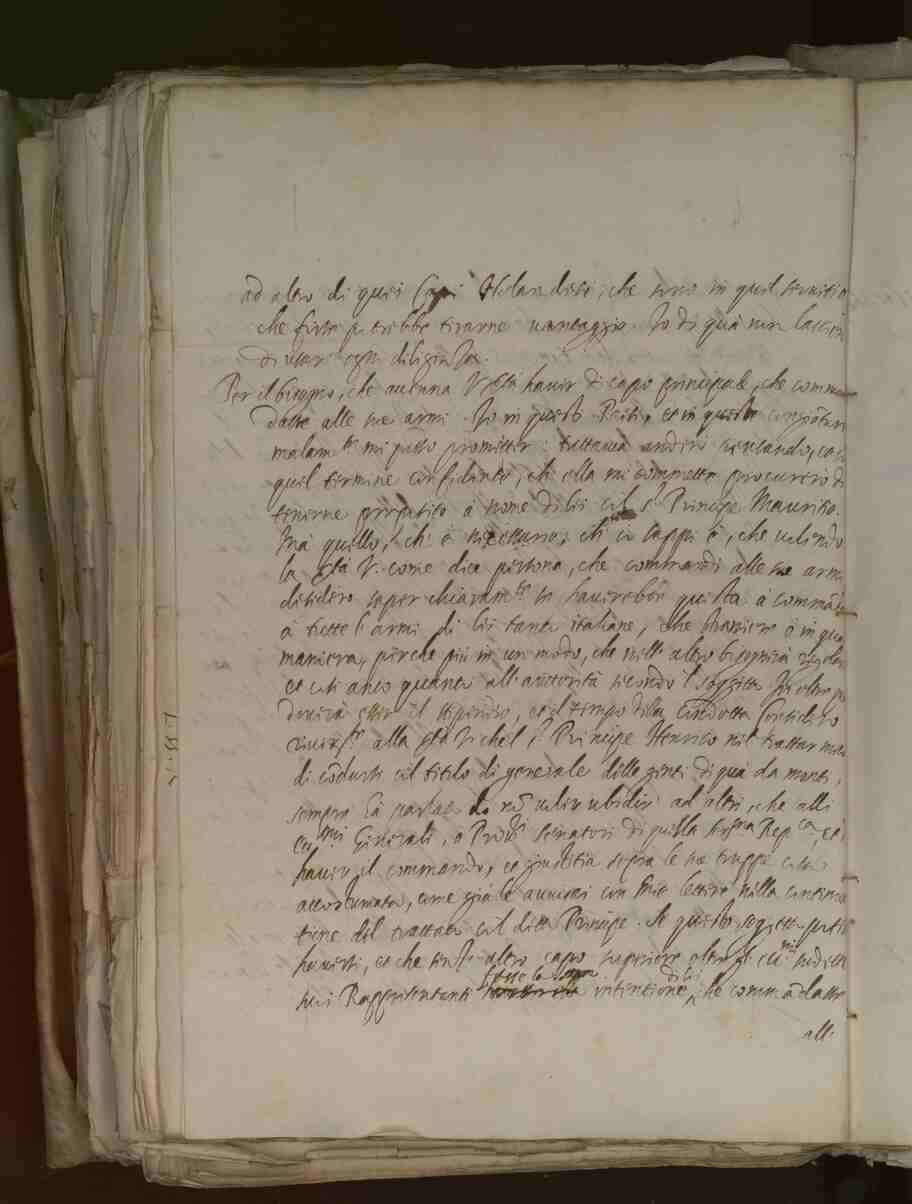 ad altro di quei Capi Holandesi, che sono in quel seruitio
che forse potrebbe tirarne uantaggio. Io di quà non lascierò
di usar ogni diligenza.
Per il bisogno, che accenna V. Stà hauer di capo principale, che comman
dasse alle sue armi. Io in questo Paese, et in queste congionture
malamte mi posso prometter: tuttauia anderò
quel termine confidente, che ella mi commette procurerò di
tenerne proposito à nome di lei col Sr Principe Mauritio.
Mà quello, ch' è necessario, ch' io sappi è, che uolendo
la Stà V. come dice persona, che commandi alle sue armi
desidero saper chiaramte se hauerebbe questa à commãdar
à tutte l'armi di lei tanto italiane, che straniere ò in qual
maniera, perche più in un modo, che nell' altro bisogneria regolarsi
et così anco quanto all' auttorità secondo 'l soggetto. Inoltre
doueria esser il stipendio, et il tempo della Condotta. Considero
riuerte alla Stà V. che 'l Sr Principe Henrico nel trattar meco
di cõdursi col titolo di generale delle genti di quà da monti,
sempre hà parlato di nõ uoler ubidir ad altri, che alli
Generali, ò Prori senatori di quella serma Repca, et di
hauer il commando, et giustitia sopra le sue truppe
accostumata, come già le auuisai con mie lettere nella continua
tione del trattato col detto Principe. Se questo soggetto potesse
hauersi, et che altro capo superiore oltre li Eccmi sudetti
suoi Rappresentanti fosse la sua intentione di lei, che commãdasse
all'